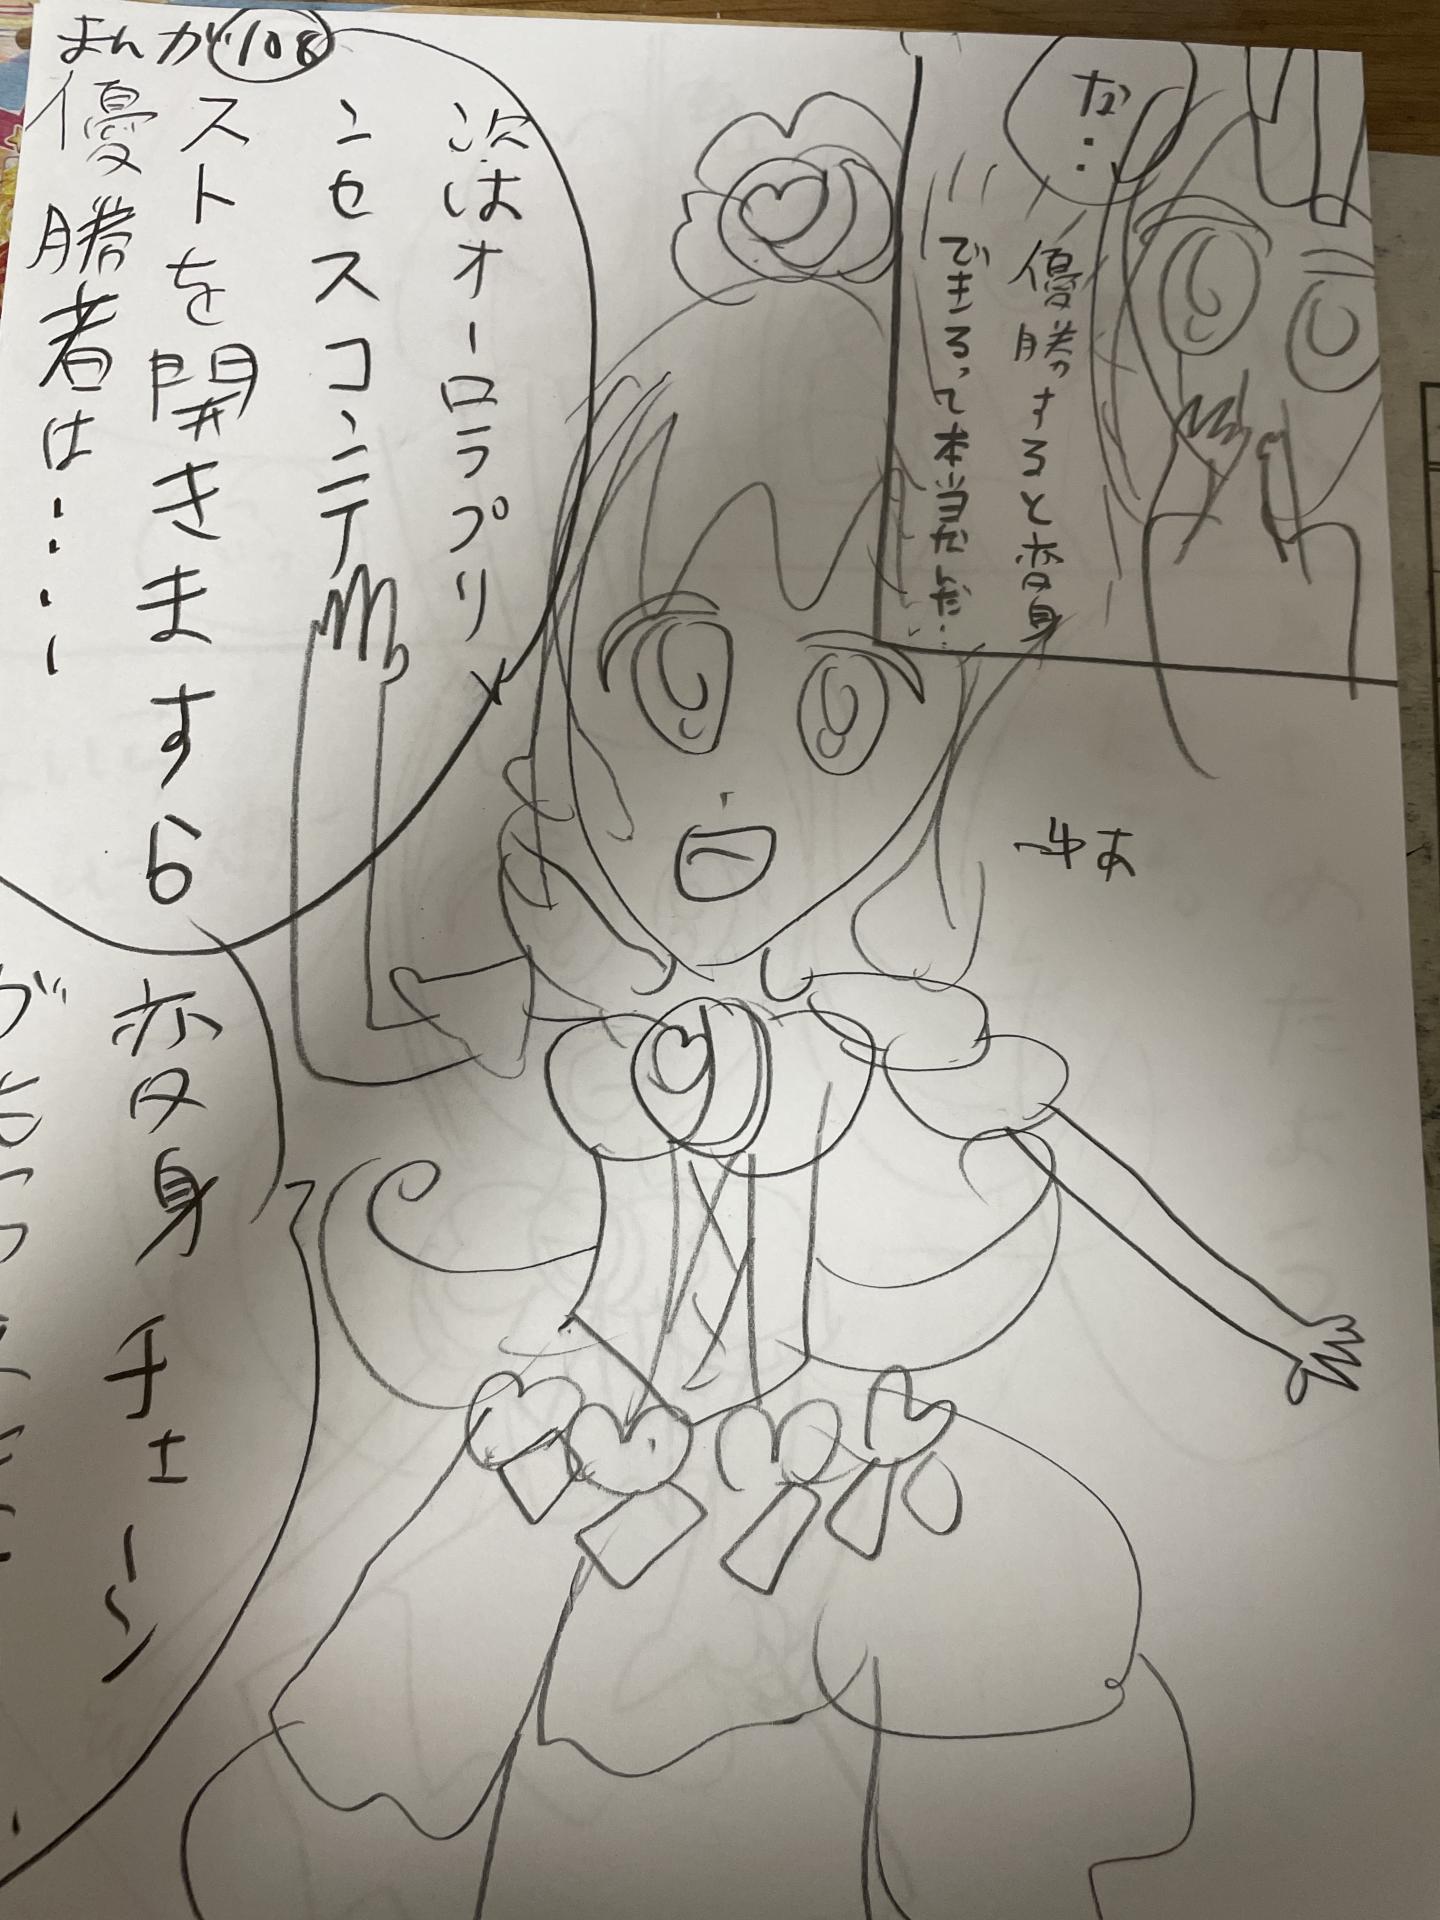 まんが108
な…
優勝すると変身
できるって本当だんだ…
ゆあ
次はオーロラプリ
ンセスコンテ
ストを開きますら
優勝者は…
変身チェーン
が